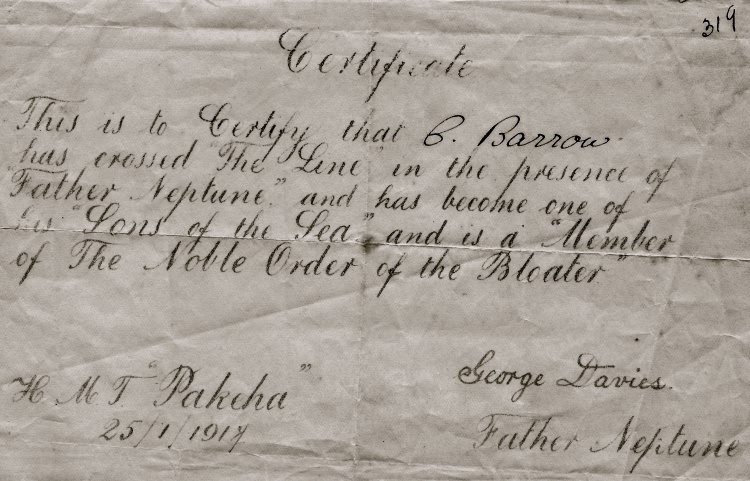 319
Certificate
This is to Certify that C. Barrow
has crossed "The Line" in the presence of
Father Neptune" and has become one of
his "Sons of the Sea" and is a "Member
of The Noble Order of the Bloater"
H M T "Pakeha"
25/1/1917
George Davies.
Father Neptune